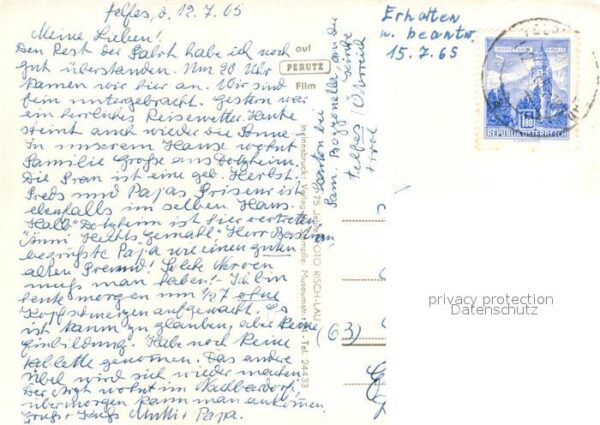 Telfes, d. 12.7.65
Meine Lieben!
Den Rest der Fahrt habe ich noch
gut überstanden. Um 20 Uhr
kamen wir hier an. Wir sind
fein untergebracht. Gestern war
ein herrliches Reisewetter. Heute
scheint auch wieder die Sonne.
In unserem Hause wohnt
Familie Große aus Dotzheim.
Die Frau ist eine geb. Herbst.
Freds und Papas Friseur ist
ebenfalls im selben Haus.
"Halb" Dotzheim ist hier vertreten.
Herr
begrüßte Papa wie einen guten
alten Freund! Solche Nerven
muß man haben! - Ich bin
heute morgen um 1/2 7 ohne
Kopfschmerzen aufgewacht. Es
ist kaum zu glauben, aber keine
Einbildung. Habe noch keine
Tablette genommen. Das andere
Übel wird sich wieder machen.
Der Arzt wohnt im Nachbardorf,
übermorgen kann man ankommen.
Gruß + Kuß Mutti + Papa.
auf
PERUTZ
Film
75 Jahre FOTO RISCH-LAU
in Innsbruck: Verlag Museumstr. Tel. 24433
bei
Fam.
Telfes / Österreich
Tirol
(63)
Erhalten
u. beantw.
15.7.65
1.80
REPUBLIK ÖSTERREICH
privacy protection
Datenschutz